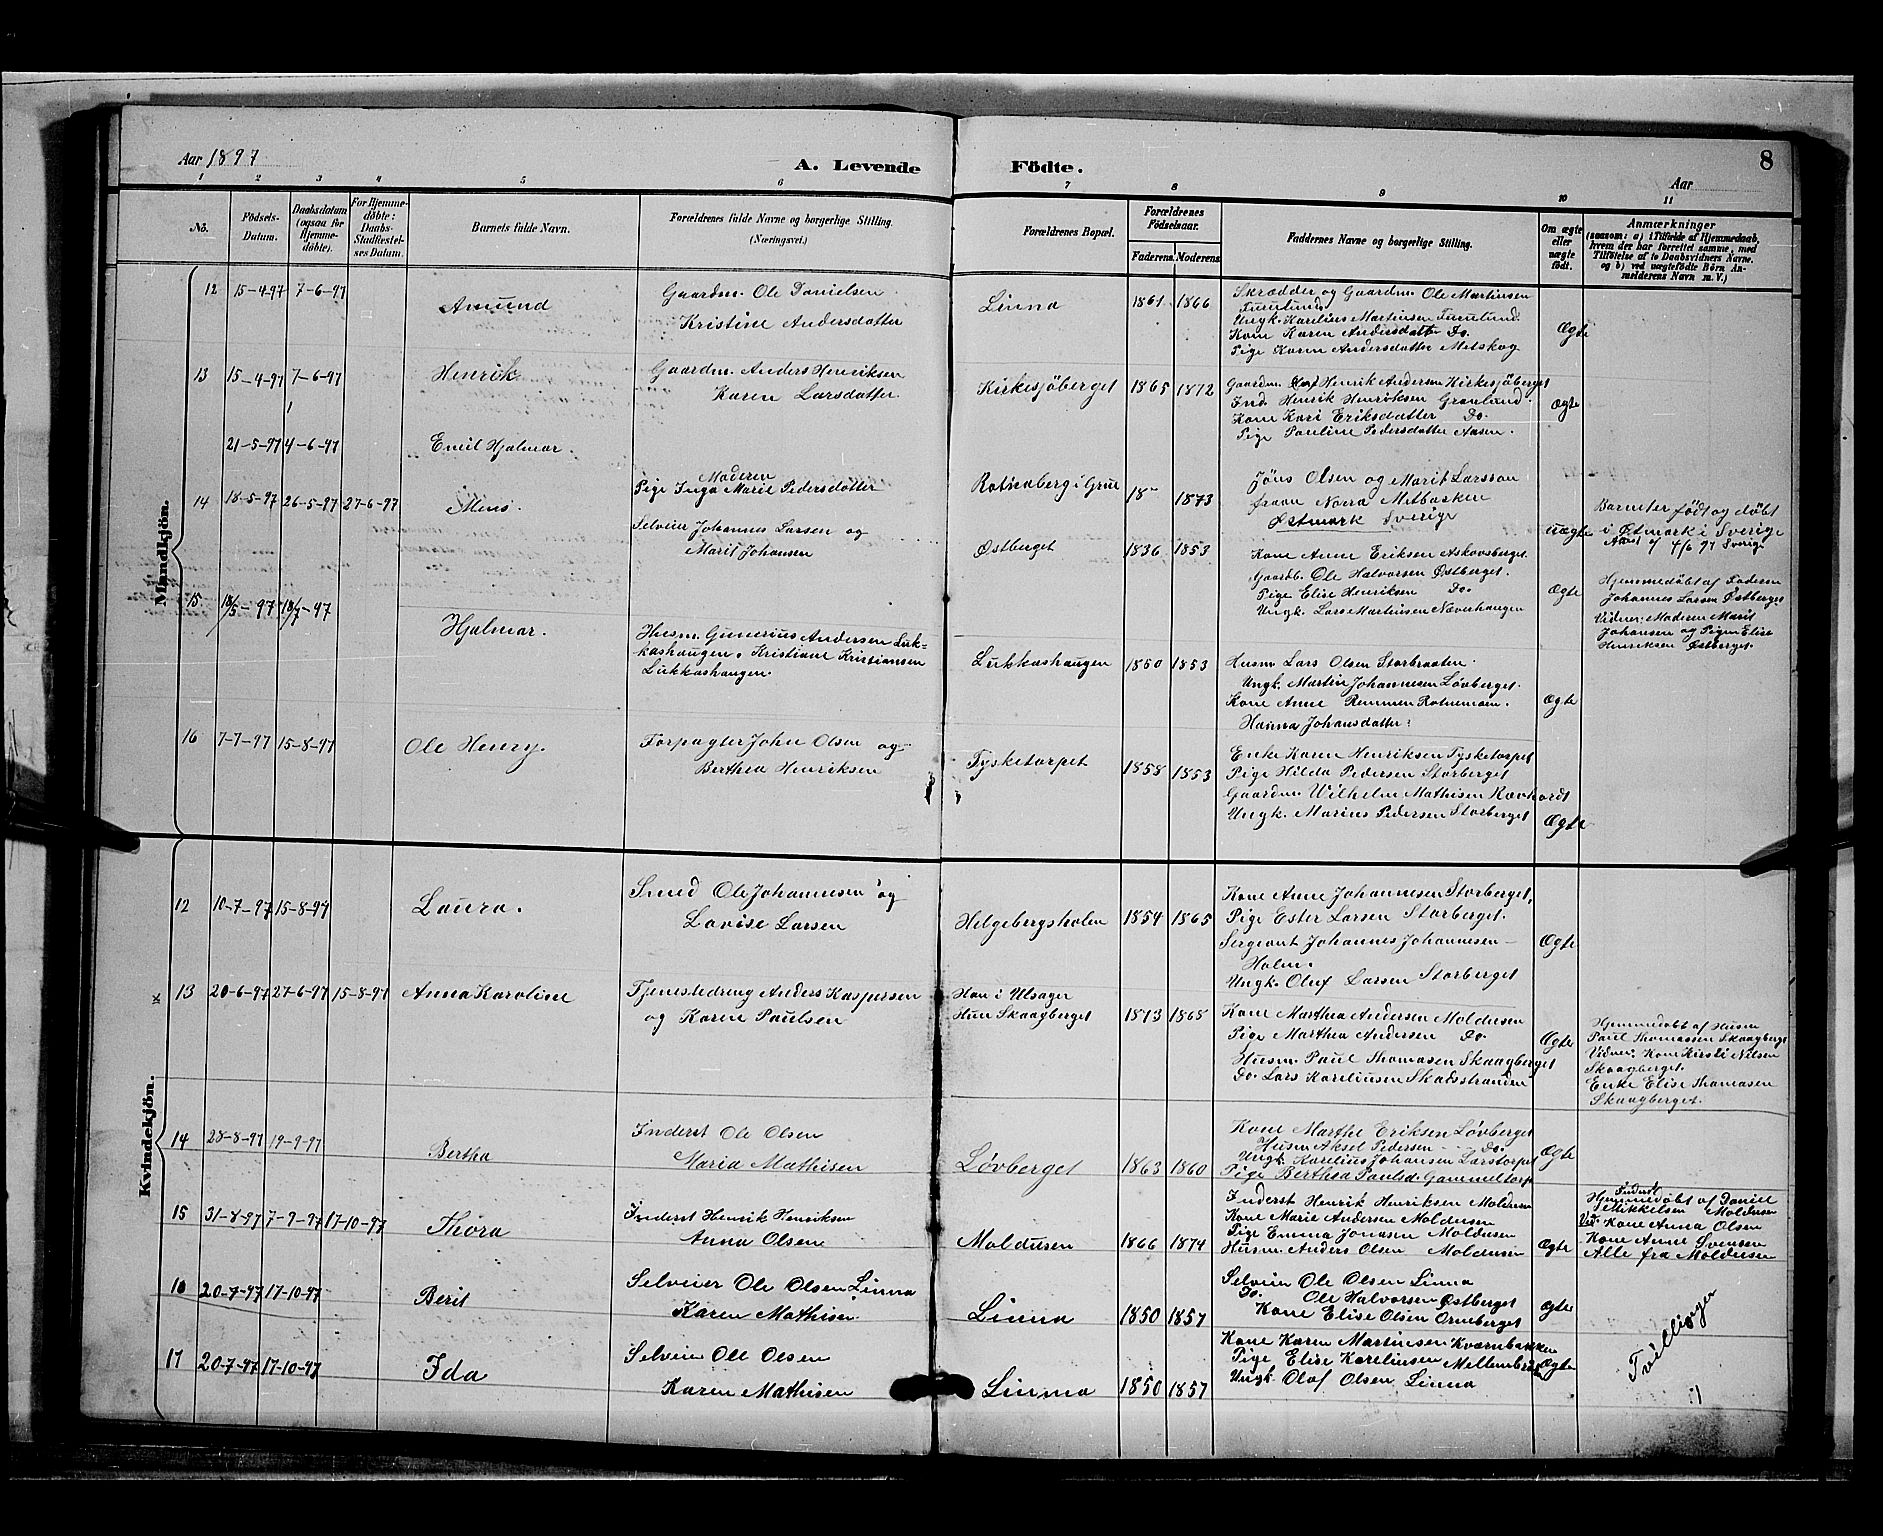 Aar 1897
A. Levende Födte.
8
Aar
1 2 3 4 5 6 7 8 9 10 11
No.
Födsels-Datum.
Daabsdatum (ogsaa for Hjemme-döbte).
For Hjemme-döbte: Daabs-Stadfæstel-ses Datum.
Barnets fulde Navn.
Forældrenes fulde Navne og borgerlige Stilling.
(Næringsvei.)
Forældrenes Bopæl.
Forældrenes Födselsaar.
Faderens. Moderens.
Faddernes Navne og borgerlige Stilling.
Om ægte eller uægte födt.
Anmærkninger
(saasom: a) i Tilfælde af Hjemmedaab,
hvem der har forrettet samme, med
Tilföielse af to Daabsvidners Navne,
og b) ved uægtefödte Börn An-
melderens Navn m. V.)
Mandkjön.
12 15-4-97 7-6-97 Amund
Gaardm. Ole Danielsen
Kristine Andersdatter
Linna 1861 1866
Skrædder og Gaardm. Ole Martinsen
Furulund
Ungk. Karelius Martinsen Furulund.
Kone Karen Andersdatter Do.
Pige Karen Andersdatter Metskog
Ægte
13 15-4-97 7-6-97 Henrik
Gaardm. Anders Henriksen
Karen Larsdatter.
Kirkesjöberget 1865 1872
Gaardm. Henrik Andersen Kirkesjöberget
Ind. Henrik Henriksen Grønlund.
Kone Kari Eriksdatter Do.
Pige Pauline Pedersdatter Aasen.
Ægte
21-5-97 4-6-97 Emil Hjalmar.
Moderen
Pige Inga Marie Pedersdatter
Rotneberg i Grue 18- 1873
Jöns Olsen og Marit Larsson
fraan Norra Metbacken
Østmark Sverige
uægte
Barnet er født og døbt
i Østmark i Sverige
14 18-5-97 26-5-97 27-6-97
Selveier Johannes Larsen og
Marit Johansen
Østberget 1836 1853
Kone Anne Eriksen Askovsberget
Gaardb. Ole Halvorsen Østberget.
Pige Elise Henriksen Do.
Ungk. Lars Martinsen Næverhaugen
Ægte
Hjemmedöbt af Faderen
Johannes Larsen Østberget
Vidner: Moderen Marit
Johansen og Pigen Elise
Henriksen Østberget.
15 18/5-97 18/7-97 Hjalmar.
Husm. Gunerius Andersen Luk-
kashaugen. Kristiane Kristiansen
Lukkashaugen.
Lukkashaugen 1850 1853
Husm Lars Olsen Storbraaten.
Ungk. Martin Johannesen Løvberget.
Kone Anne Remmen Rotnemoen.
Hanna Johansdatter.
Ægte
16 7-7-97 15-8-97 Ole Henry.
Forpagter John Olsen og
Berthea Henriksen
Tysketorpet 1858 1853
Enke Karen Henriksen Tysketorpet
Pige Hilda Pedersen Storberget
Gaardm. Wilhelm Mathisen Rævholt
Ungk. Marius Pedersen Storberget
Ægte
Kvindekjön.
12 10-7-97 15-8-97 Laura.
Smed Ole Johannesen og
Lovise Larsen
Helgebergsholen 1854 1865
Kone Anne Johannesen Storberget,
Pige Ester Larsen Storberget.
Sergeant Johannes Johannesen
Holm.
Ungk. Oluf Larsen Storberget
Ægte
13 20-6-97 27-6-97 15-8-97 Anna Karoline
Tjenestedreng Anders Kaspersen
og Karen Paulsen
Han i Ulsager
Hun Skaagberget 1873 1868
Kone Marthea Andersen Moldusen
Pige Marthea Andersen Do.
Husm. Paul Thomasen Skaagberget
Do. Lars Kareliusen Skadsstranden
Ægte
Hjemmedöbt af Husm
Paul Thomassen Skaagberget
Vidner: Kone Kirsti Nilsen
Skaagberget.
Enke Elise Thomasen
Skaagberget.
14 28-8-97 19-9-97 Bertha
Inderst Ole Olsen
Maria Mathisen
Løvberget 1863 1860
Kone Marthe Eriksen Løvberget
Husm Aksel Pedersen Do.
Ungk. Karelius Johansen Larstorpet
Pige Berthea Paulsd. Gammeltorp
Ægte
15 31-8-97 7-9-97 17-10-97 Thora
Inderst Henrik Henriksen
Anna Olsen
Moldusen 1866 1874
Inderst Henrik Henriksen Moldusen
Kone Marie Andersen Moldusen
Pige Emma Jonasen Moldusen
Husm. Anders Olsen Moldusen
Ægte
Inderst
Hjemmedøbt af Daniel
Mikkelsen Moldusen
Vid: Kone Anna Olsen
Kone Anne Svensen
Alle fra Moldusen
16 20-7-97 17-10-97 Berit
Selveier Ole Olsen Linna
Karen Mathisen
Linna 1850 1857
Selveier Ole Olsen Linna
Do. Ole Halvorsen Østberget
Kone Elise Olsen Orneberget
Ægte
Tvillinger
17 20-7-97 17-10-97 Ida
Selveier Ole Olsen
Karen Mathisen
Linna 1850 1857
Kone Karen Martinsen Kværnbakken
Pige Elise Kareliusen
Ungk. Olaf Olsen Linna
Ægte